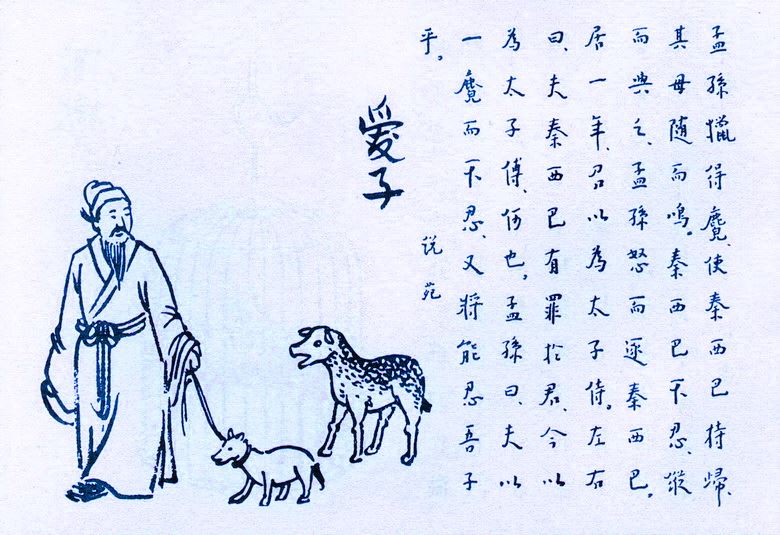 孟孫獵得麑、使秦西巴持歸、
其母随而鳴。秦西巴不忍、縱
而與之、孟孫怒而逐秦西巴。
居一年、召以為太子侍。左右
曰、夫秦西巴有罪於君、今以
為太子傅、何也。孟孫曰、夫以
一麑而不忍、又將能忍吾子
乎。
說苑
愛子